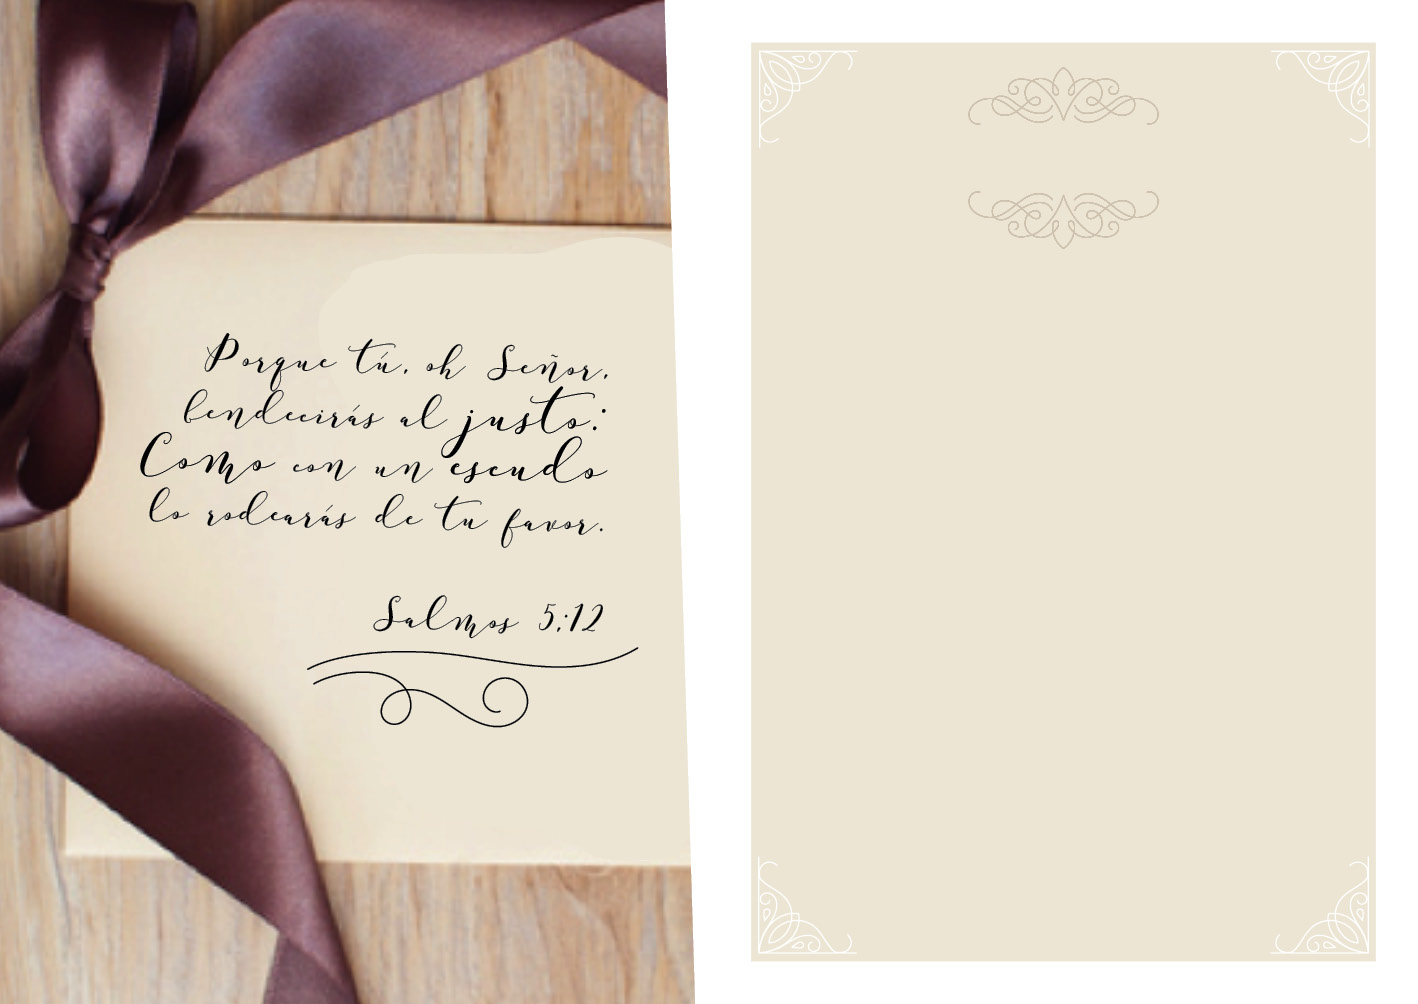 Porque tú, oh Señor,
bendecirás al justo:
Como con un escudo
lo rodearás de tu favor.
Salmos 5:12